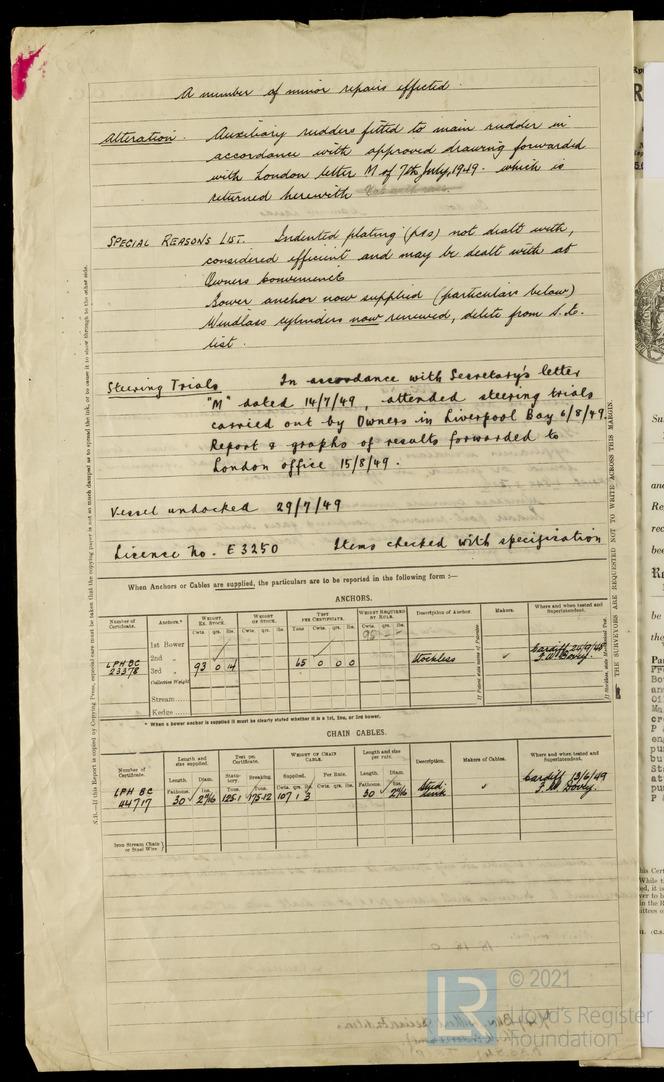 A number of minor repairs effected.
Alteration. Auxiliary rudders fitted to main rudder in
accordance with approved drawing forwarded
with London letter M of 7th July, 1949. which is
returned herewith
SPECIAL REASONS LIST. Indented plating (P&S) not dealt with,
considered efficient and may be dealt with at
Owners convenience
Bower anchor now supplied (particulars below)
Windlass cylinders now renewed, delete from S.R.
list.
Steering Trials In accordance with Secretary's letter
"M" dated 14/7/49, attended steering trials
carried out by Owners in Liverpool Bay 6/8/49.
Report & graphs of results forwarded to
London office 15/8/49.
Vessel undocked 29/7/49
Licence No. E3250 Items checked with specification
When Anchors or Cables are supplied, the particulars are to be reported in the following form :—
ANCHORS.
Number of Certificate. Anchors.* WEIGHT, EX. STOCK. WEIGHT OF STOCK. TEST PER CERTIFICATE. WEIGHT REQUIRED BY RULE. Description of Anchor. Makers. Where and when tested and Superintendent.
Cwts. qrs. lbs. Cwts. qrs. lbs. Tons Cwts. qrs. lbs. Cwts. qrs. lbs.
1st Bower 95 - -
2nd „ Cardiff 20/9/48
LPH BC 23376 3rd „ 93 0 14 65 0 0 0 Stockless F. W. Dovey.
Collective Weight
Stream
Kedge
* When a bower anchor is supplied it must be clearly stated whether it is a 1st, 2nd, or 3rd bower.
CHAIN CABLES.
Number of Certificate. Length and size supplied. Test per Certificate. WEIGHT OF CHAIN CABLE. Length and size per rule. Description. Makers of Cables. Where and when tested and Superintendent.
Length. Diam. Statutory. Breaking. Supplied. Per Rule. Length. Diam.
Fathoms. Ins. Tons. Tons. Cwts. qrs. lbs. Cwts. qrs. lbs. Fathoms. Ins.
LPH BC 44717 30 2 9/16 125.1 175.12 107 1 3 30 2 9/16 Stud link Cardiff 13/6/49 F. W. Dovey.
Iron Stream Chain or Steel Wire
N.B.—If this Report is copied by Copying Press, especial care must be taken that the copying paper is not so much damped as to spread the ink, or to cause it to show through to the other side.
THE SURVEYORS ARE REQUESTED NOT TO WRITE ACROSS THIS MARGIN.
If Patent state name of Patentee
If Stockless, state Mechanical Test.
LR
© 2021
Lloyd's Register
Foundation